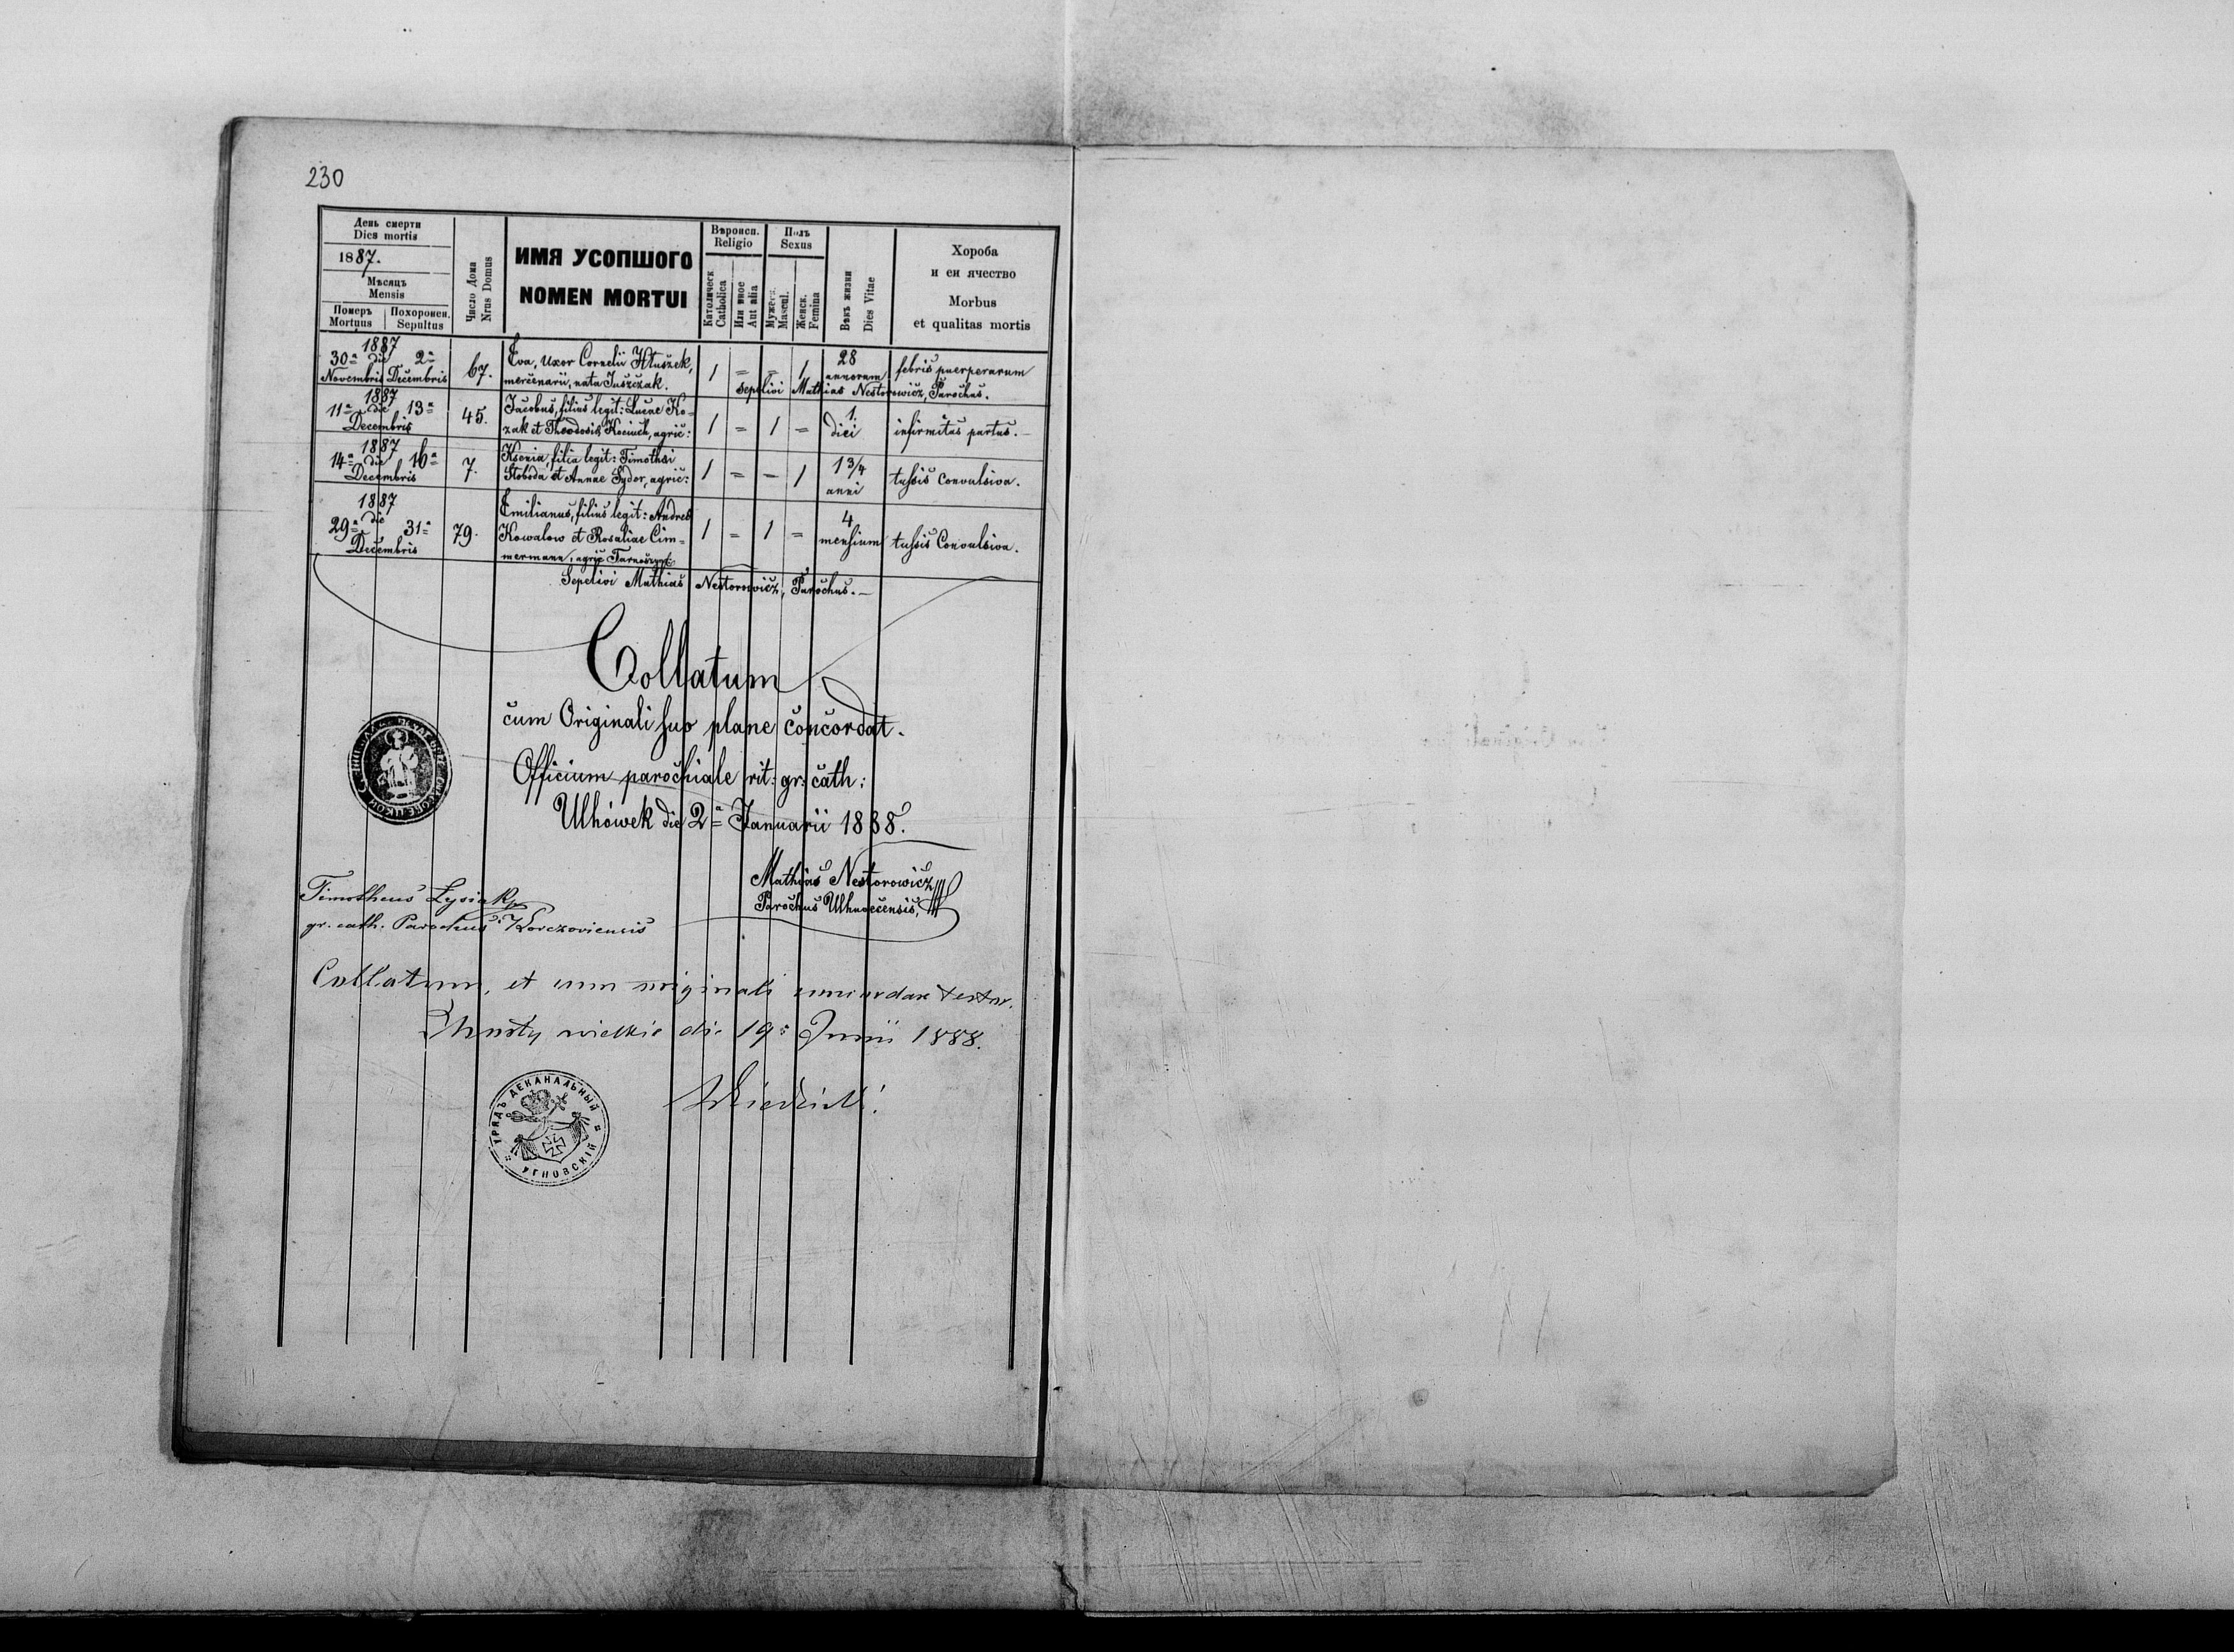 230
День смерти
Dies mortis
1887.
Мѣсяцъ
Mensis
Померъ
Mortuus
Похоронен.
Sepultus
Число Дома
Nrus Domus
ИМЯ УСОПШОГО
NOMEN MORTUI
Вѣроисп.
Religio
Католическ
Catholica
Или иное
Aut alia
Полъ
Sexus
Мужеск.
Mascul.
Женск.
Femina
Вѣкъ жизни
Dies Vitae
Хороба
и еи ячество
Morbus
et qualitas mortis
1887
30ª die 2ª
Novembris Decembris
67.
Eva, uxor Cornelii Hłuszek,
mercenarii, nata Juszczak.
1 = = 1
28
annorum
febris puerperarum
Sepelivi Mathias Nestorowicz, Parochus.
1887
11ª die 13ª
Decembris
45.
Jacobus, filius legit: Lucae Ko-
zak et Theodosia Kociuch, agric:
1 = 1 =
1.
diei
infirmitas partus.
1887
14ª die 16ª
Decembris
7.
Ksenia, filia legit: Timothei
Słoboda et Annae Sydor, agric:
1 = = 1
1 3/4
anni
tussis convulsiva.
1887
29ª die 31ª
Decembris
79.
Emilianus, filius legit: Andreae
Kowalow et Rosaliae Cim-
mermann, agric
1 = 1 =
4
mensium
tussis Convulsiva.
Sepelivi Mathias Nestorowicz, Parochus.
Collatum
cum Originali suo plane concordat.
Officium parochiale rit: gr: cath:
Ulhówek die 2ª Januarii 1888.
Mathias Nestorowicz
Parochus Ulhnoecensis,
Timotheus Łysiak
gr. cath. Parochus Korczoviensis
Collatum, et cum originali concordare testor.
wielkie die 19ª Junii 1888.
УРЯДЪ ДЕКАНАЛЬНЫЙ
УГНОВСКІЙ